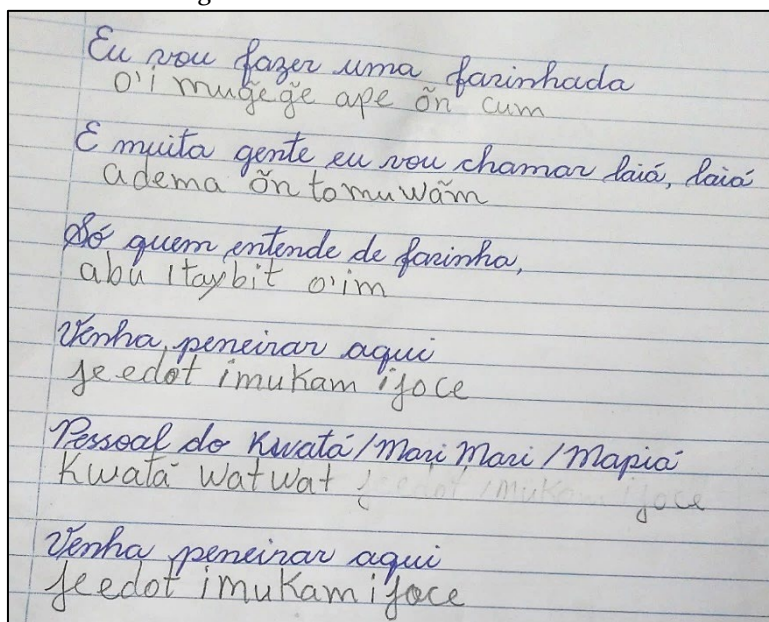 Eu vou fazer uma farinhada
o'i mug̃eg̃e ape õn cum
E muita gente eu vou chamar laiá, laiá
adema õn tomuwãm
Só quem entende de farinha,
abu itaybit o'im
Venha peneirar aqui
jeedot imukam ijoce
Pessoal do Kwatá/Mari Mari/Mapiá
Kwatá watwat
Venha peneirar aqui
jeedot imukam ijoce